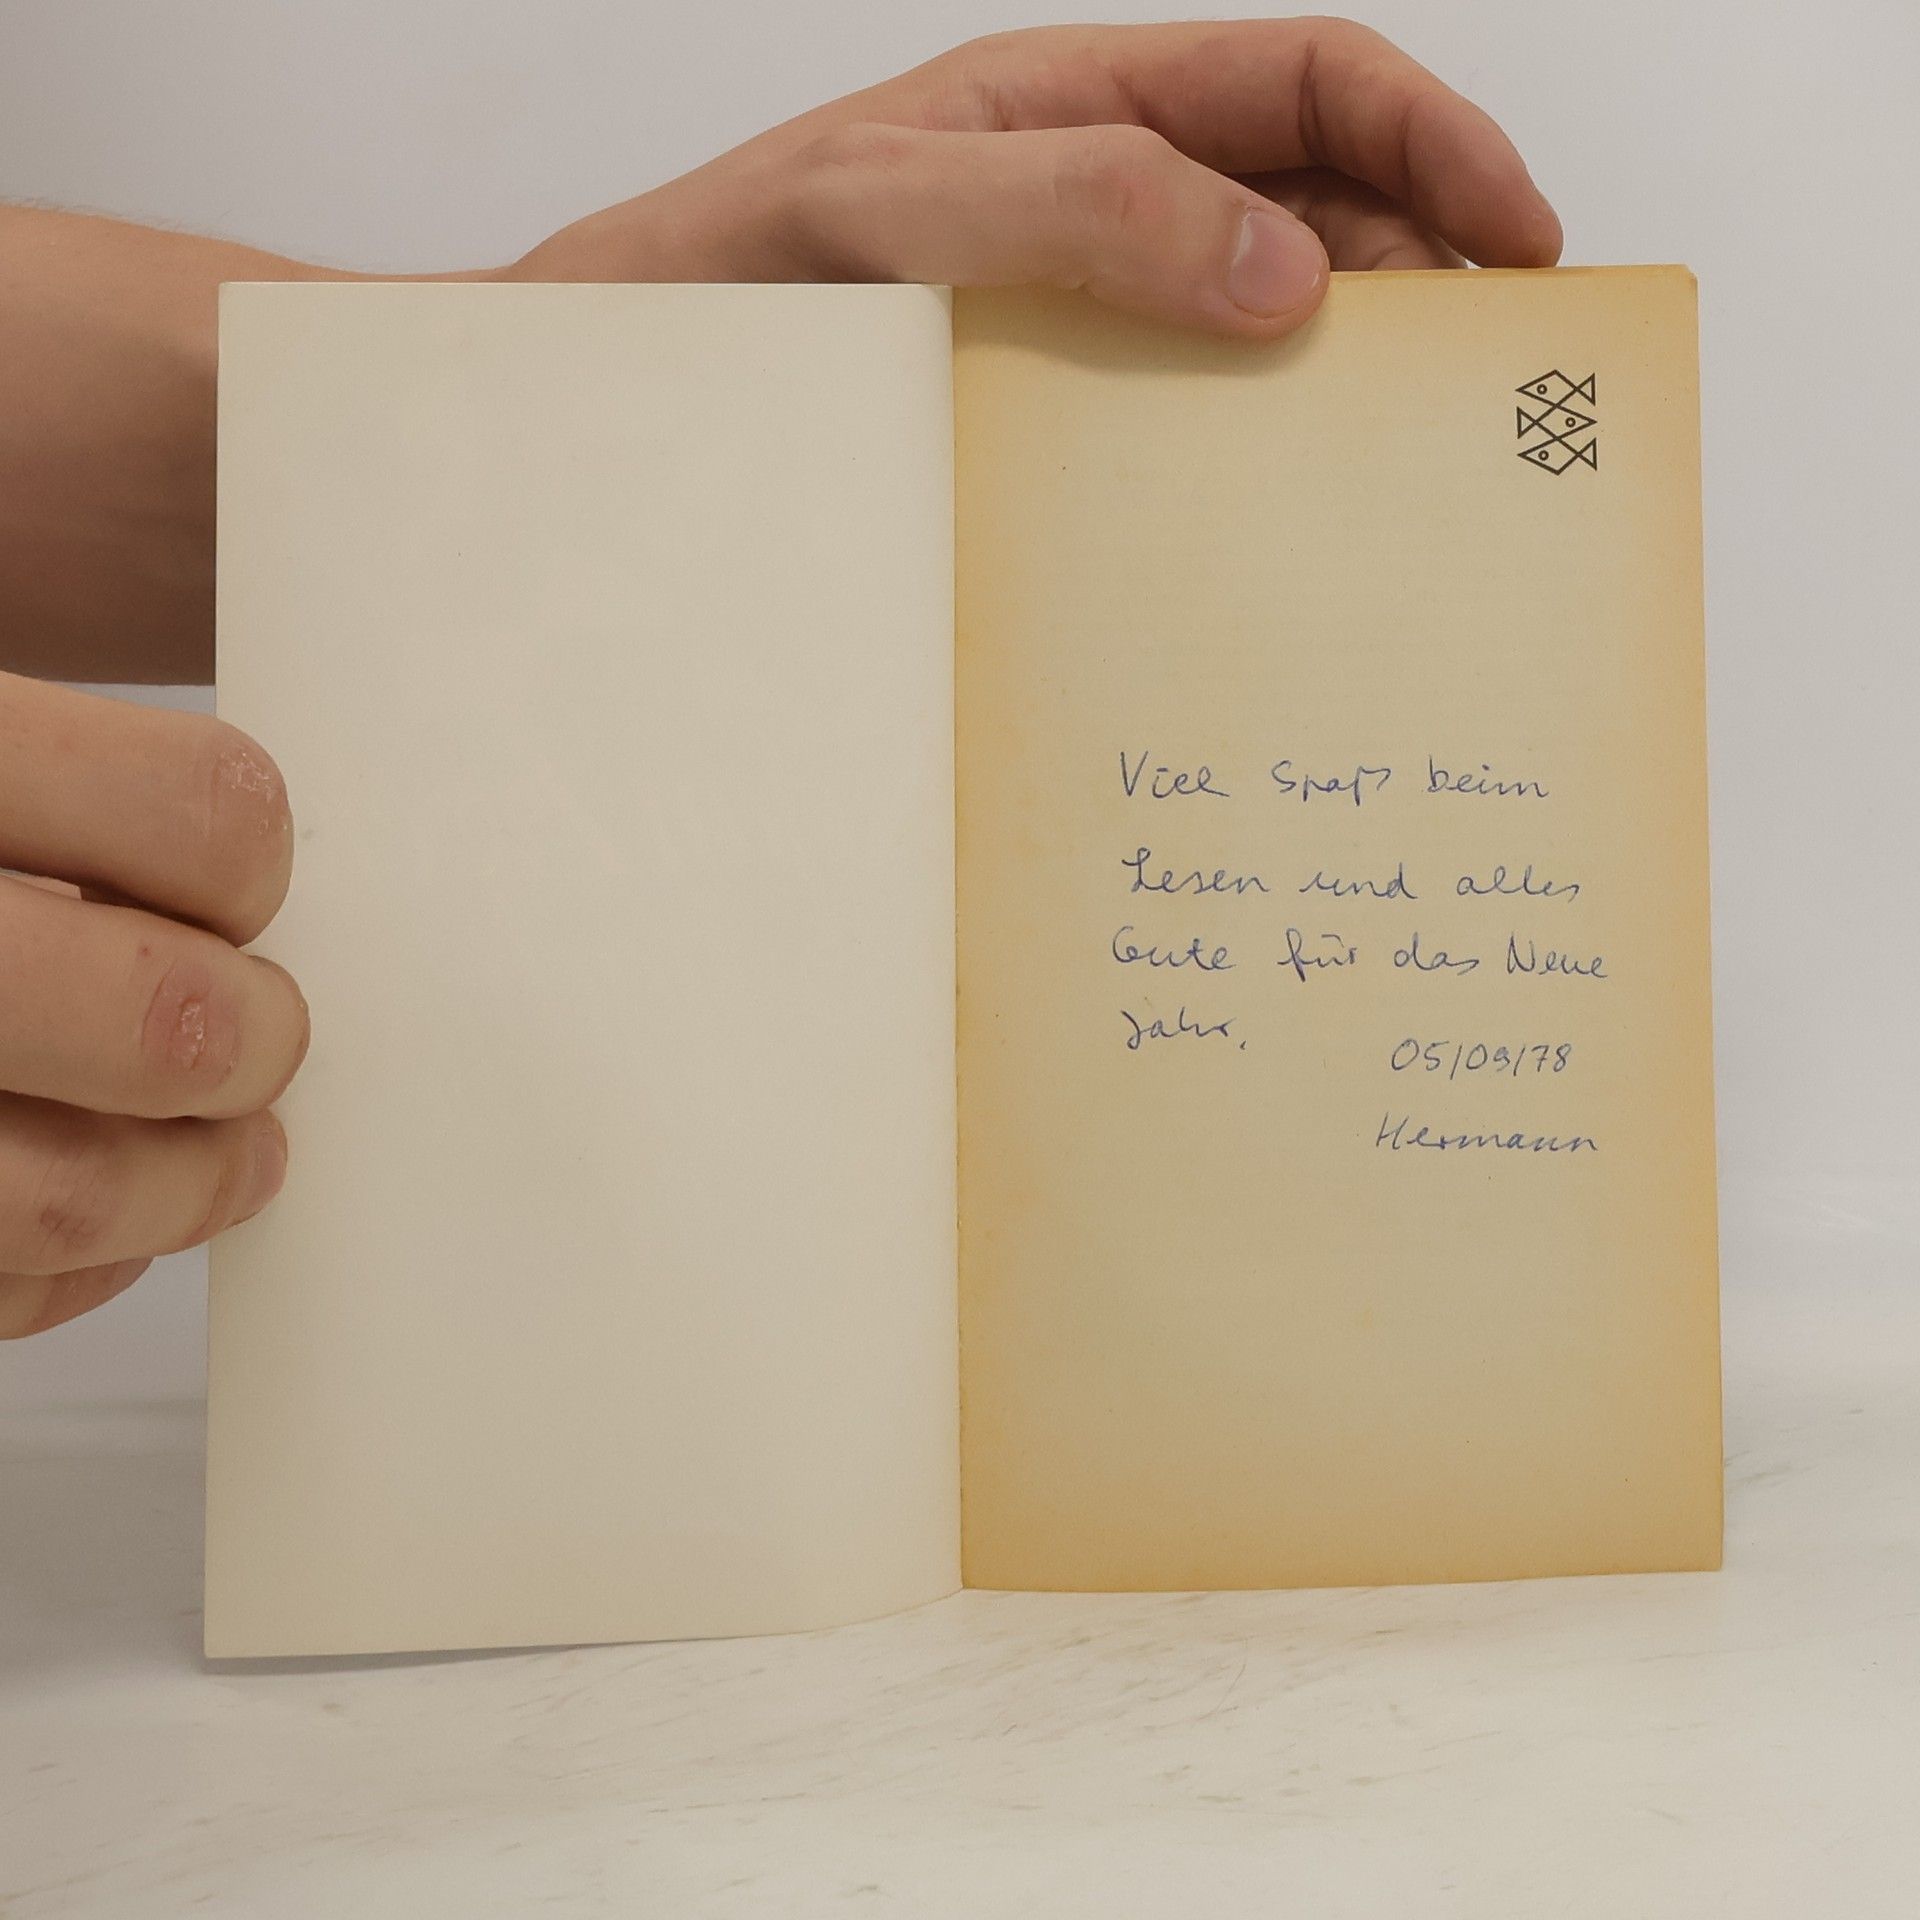 Viel Spaß beim
Lesen und alles
Gute für das Neue
Jahr.
05/09/78
Hermann